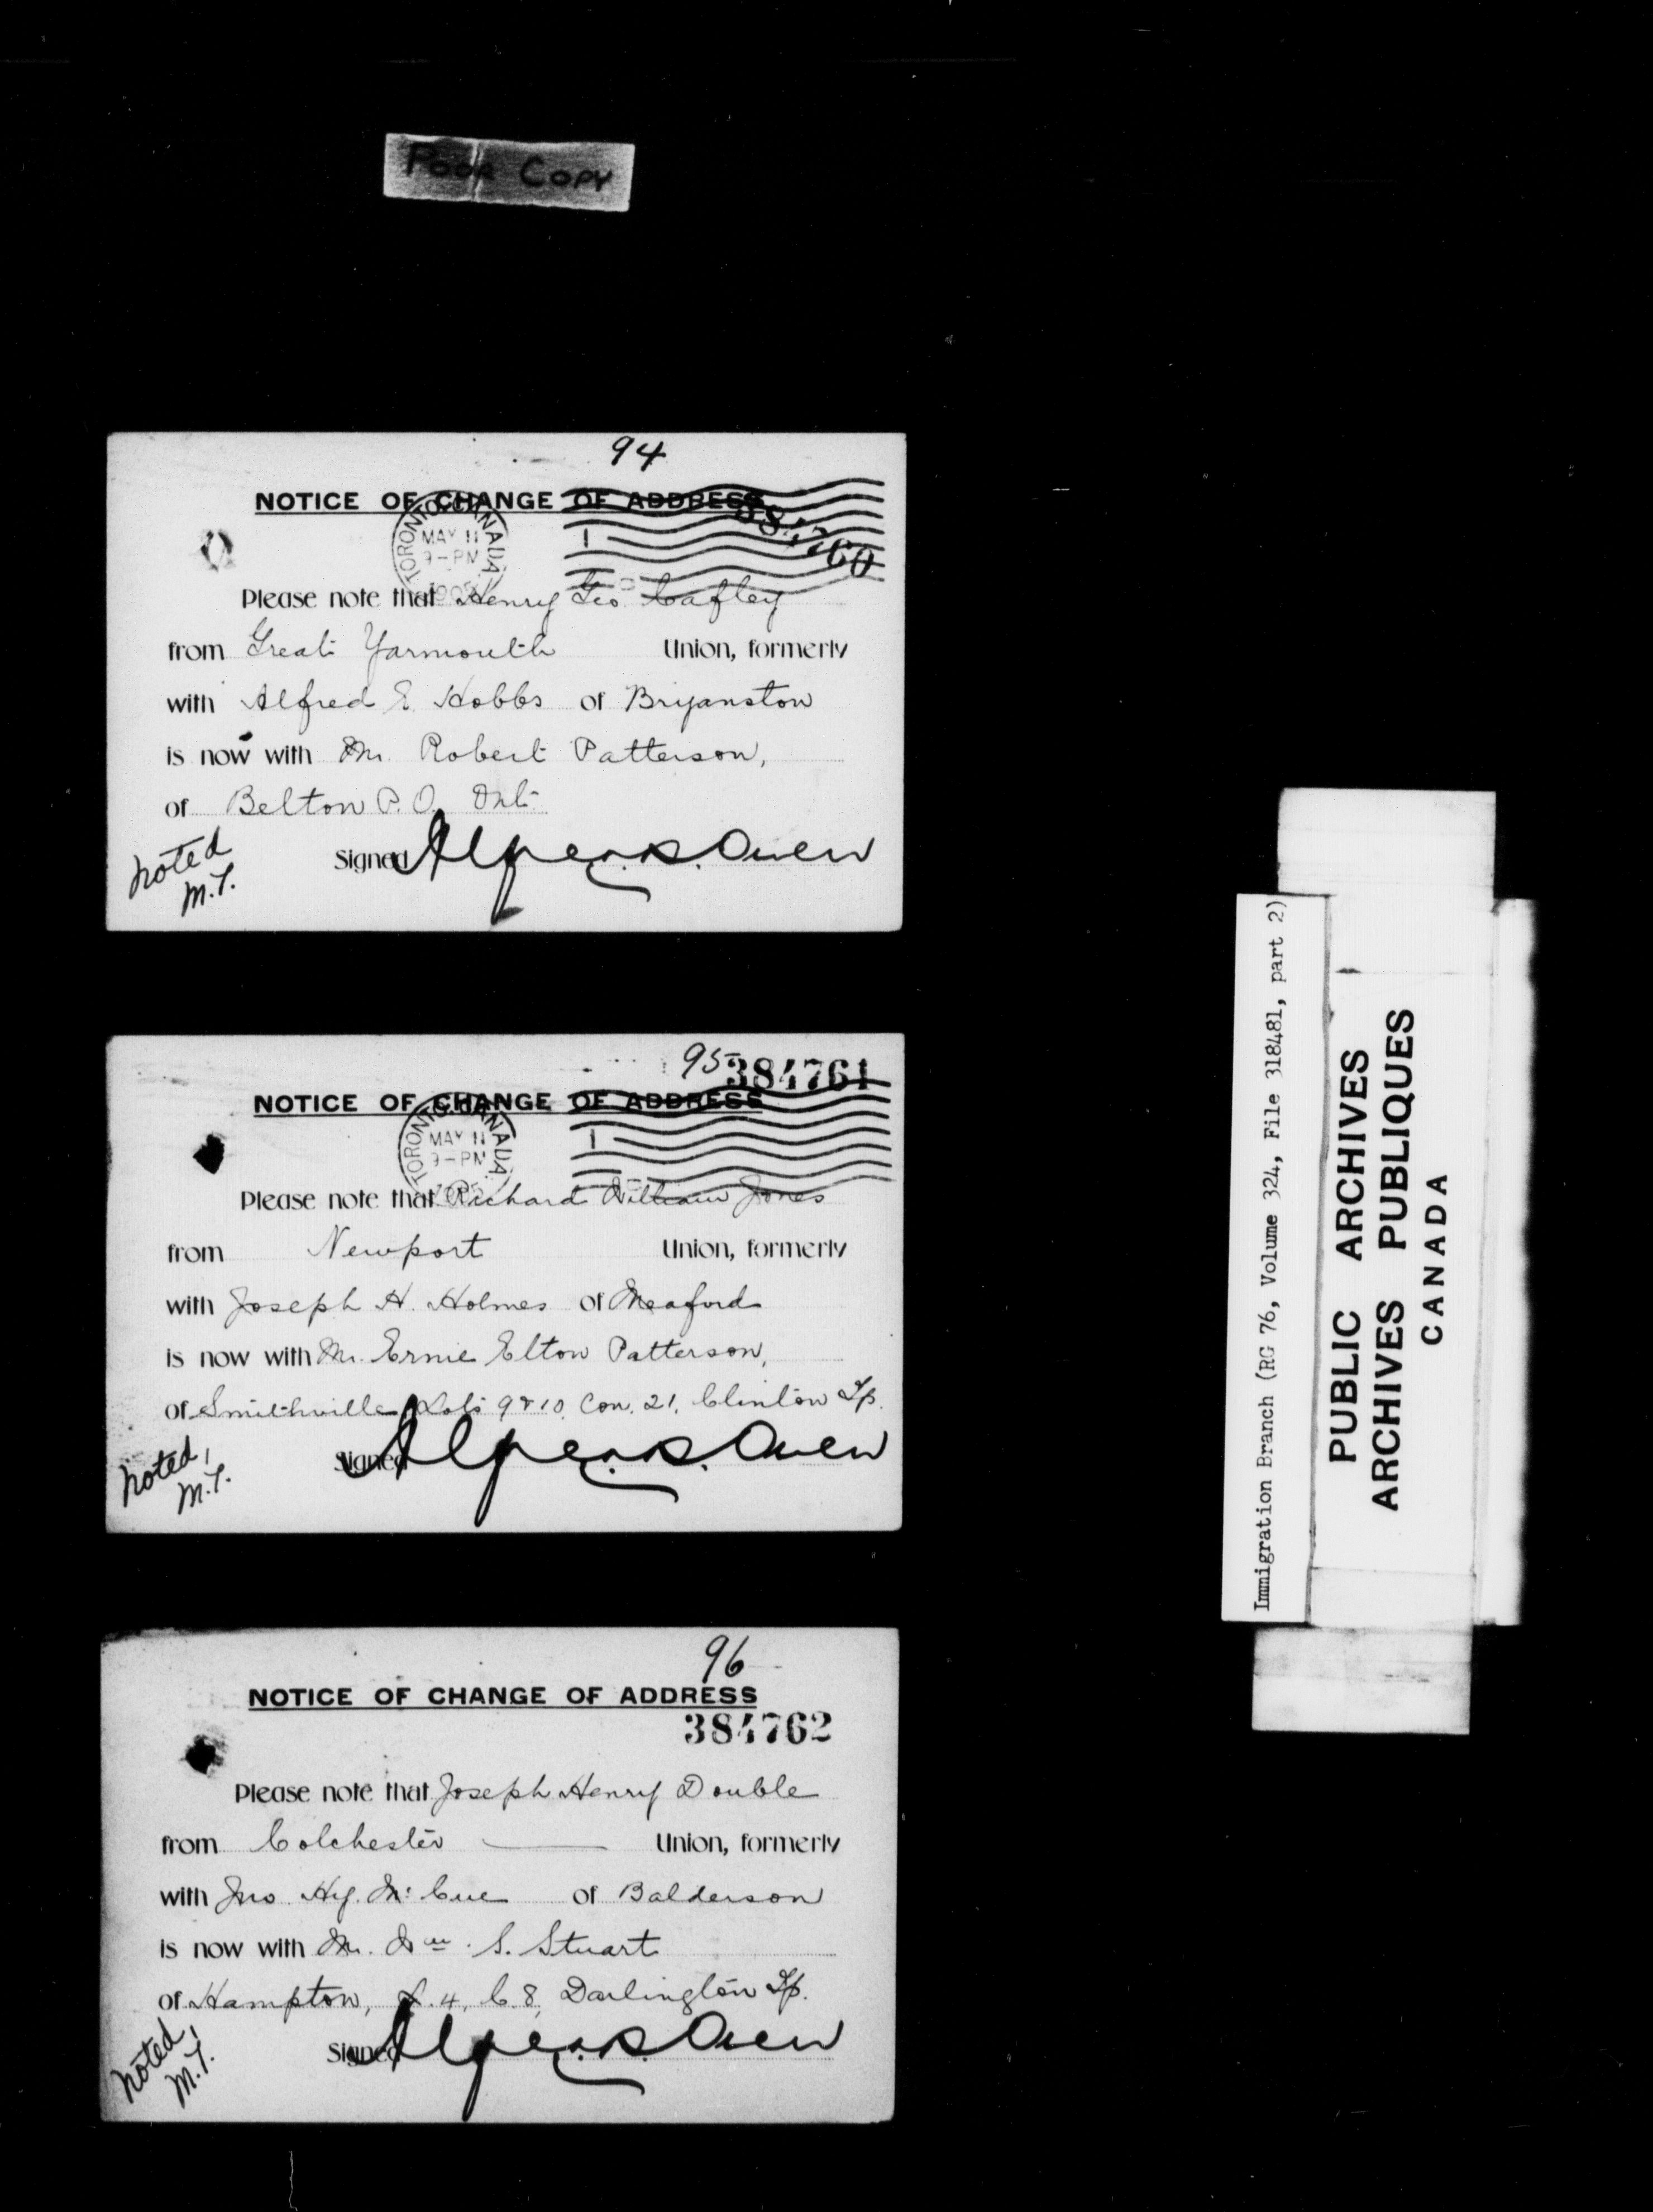 Poor Copy
94
NOTICE OF CHANGE OF ADDRESS
384760
TORONTO, CANADA
MAY 11
9-PM
1905
Please note that Henry Geo. Cafley
from Great Yarmouth Union, formerly
with Alfred E. Hobbs of Bryanston
is now with Mr. Robert Patterson,
of Belton P.O. Ont.
Signed Owen
noted
M.T.
95
384761
NOTICE OF CHANGE OF ADDRESS
TORONTO, CANADA
MAY 11
9-PM
1905
Please note that Richard William Jones
from Newport Union, formerly
with Joseph H. Holmes of Meaford
is now with Mr. Ernie Elton Patterson,
of Smithville, Lots 9 & 10, Con. 21, Clinton Tp.
Signed Owen
noted,
M.T.
96
NOTICE OF CHANGE OF ADDRESS
384762
Please note that Joseph Henry Double
from Colchester Union, formerly
with Jno. Hy. McCue of Balderson
is now with Mr. Wm. S. Stuart
of Hampton, L. 4, C. 8, Darlington Tp.
Signed Owen
noted,
M.T.
Immigration Branch (RG 76, Volume 324, File 318481, part 2)
PUBLIC ARCHIVES
ARCHIVES PUBLIQUES
CANADA